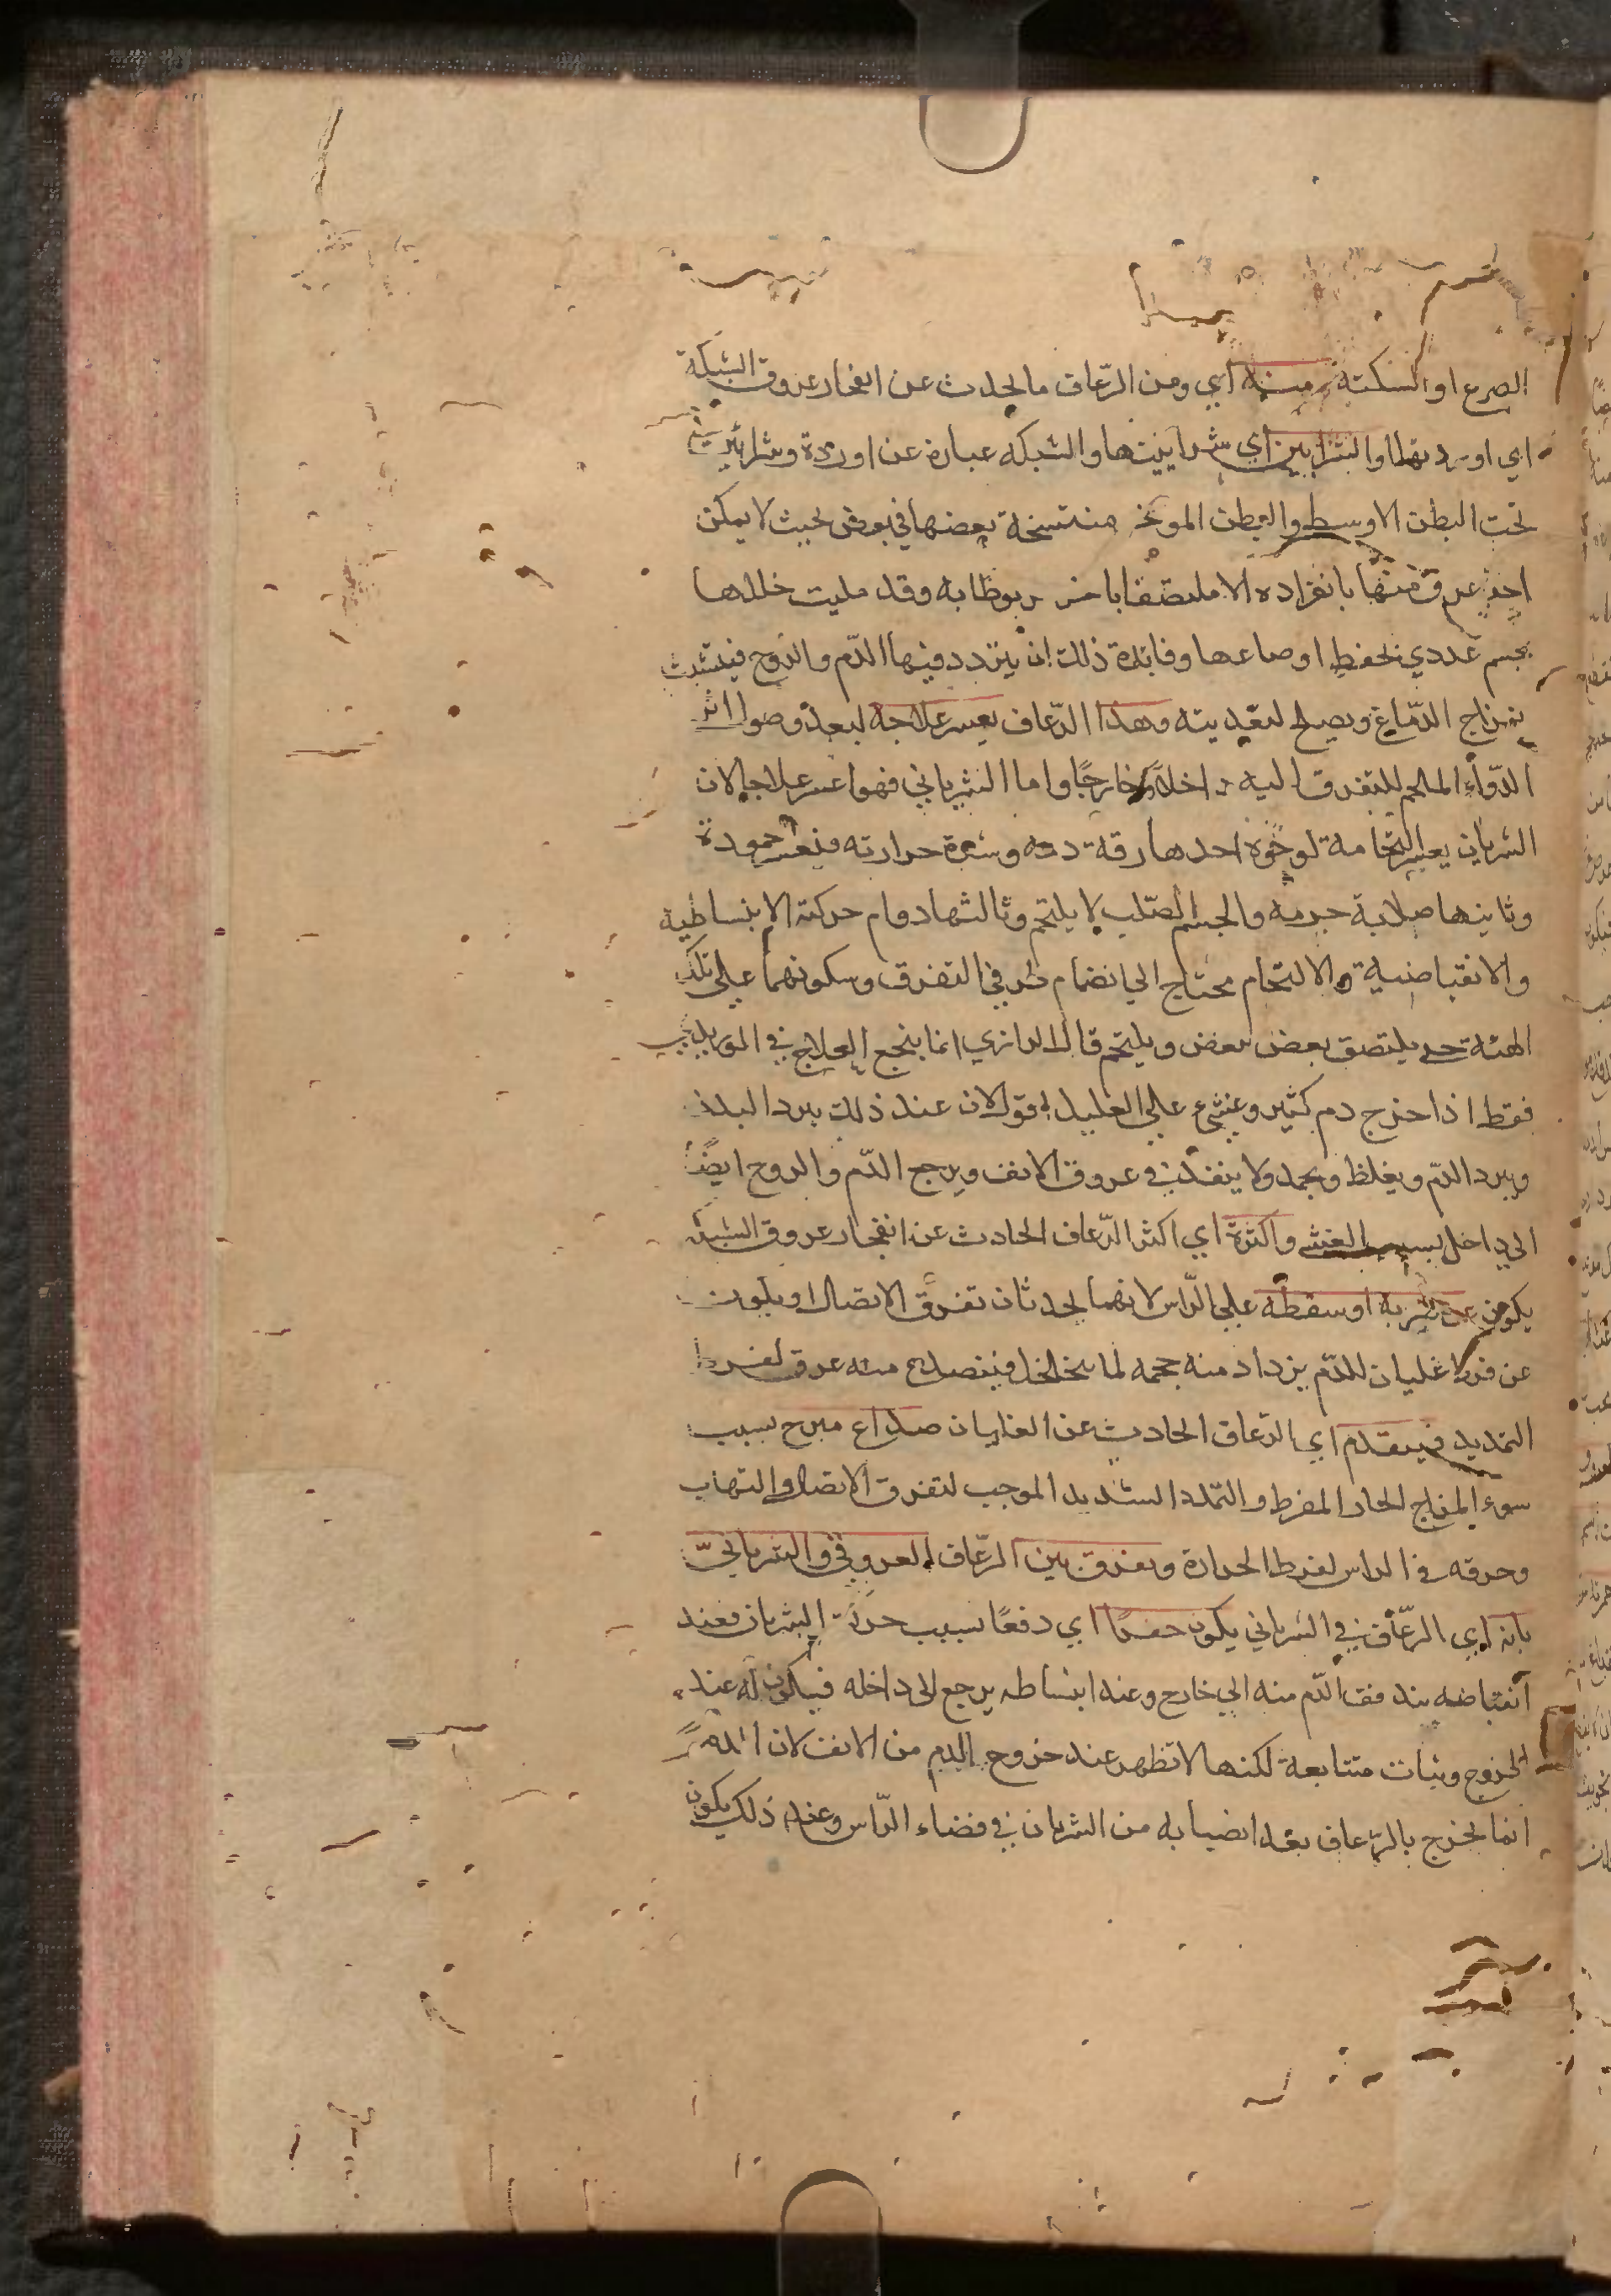 الصرع او السكتة ومنه اي ومن الرّعاف ما يحدث عن انفجار عروق الشبكة
اي اوردتها والشرايين اي شرايينها والشبكه عبارة عن اوردة وشرايين
تحت البطن الاوسط والبطن الموخر منتسخة بعضها في بعض بحيث لا يمكن
اخذ عرق منها بانفراده الا ملتصقا باخر مربوطا به وقد مليت خللها
بجسم غددي يحفظ اوضاعها وفايدة ذلك ان يتردد فيها الدّم والروح فيتشبث
بمزاج الدّماغ ويصلح لتغديته وهذا الرّعاف يعسر علاجه لبعد وصول اثر
الدّواء الملحم للتفرق اليه داخلاً وخارجًا واما الشرياني فهو اعسر علاجا لان
الشريان يعسر التحامه لوجوه احدها رقة دمه وشدة حرارته فيعسر جموده
وثانيها صلابة جرمه والجسم الصّلب لا يلتحم وثالثها دوام حركته الانبساطية
والانقباضية والالتحام محتاج الي انضمام طرفي التفرق وسكونهما علي تلك
الهئة حتى يلتصق بعض ببعض ويلتحم قال الرازي انما ينجع العلاج في
فقط اذا خرج دم كثير وغشي علي العليل اقول لان عند ذلك يبرد البدن
ويبرد الدّم ويغلظ ويجمد ولا ينفذ في عروق الانف ويرجع الدّم والروح ايضًا
الي داخل بسبب الغشي واكثره اي اكثر الرّعاف الحادث عن انفجار عروق الشبكة
يكون عن ضربه او سقطه علي الرّاس لانهما يحدثان تفرق الاتصال او يكون
عن فرط غليان للدّم يزداد منه حجمه لما يتخلخل فينصدع منه عرق لفرط
التمديد فيتقدم اي الرّعاف الحادث عن الغليان صداع مبرح بسبب
سوء المزاج الحار المفرط والتمدد الشديد الموجب لتفرق الاتصال والتهاب
وحرقه في الراس لفرط الحرارة ويفرق بين الرّعاف العروقي والشريانيّ
بانه اي الرّعاف في الشرياني يكون حفزًا اي دفعًا بسبب حركة الشريان فعند
انقباضه يندفق الدّم منه الي خارج وعند انبساطه يرجع الى داخله فيكون له عند
الخروج وثبات متتابعة لكنها لا تظهر عند خروج الدم من الانف لان الدم
انما يخرج بالرّعاف بعد انصبابه من الشريان في فضاء الرّاس وعند ذلك يكون